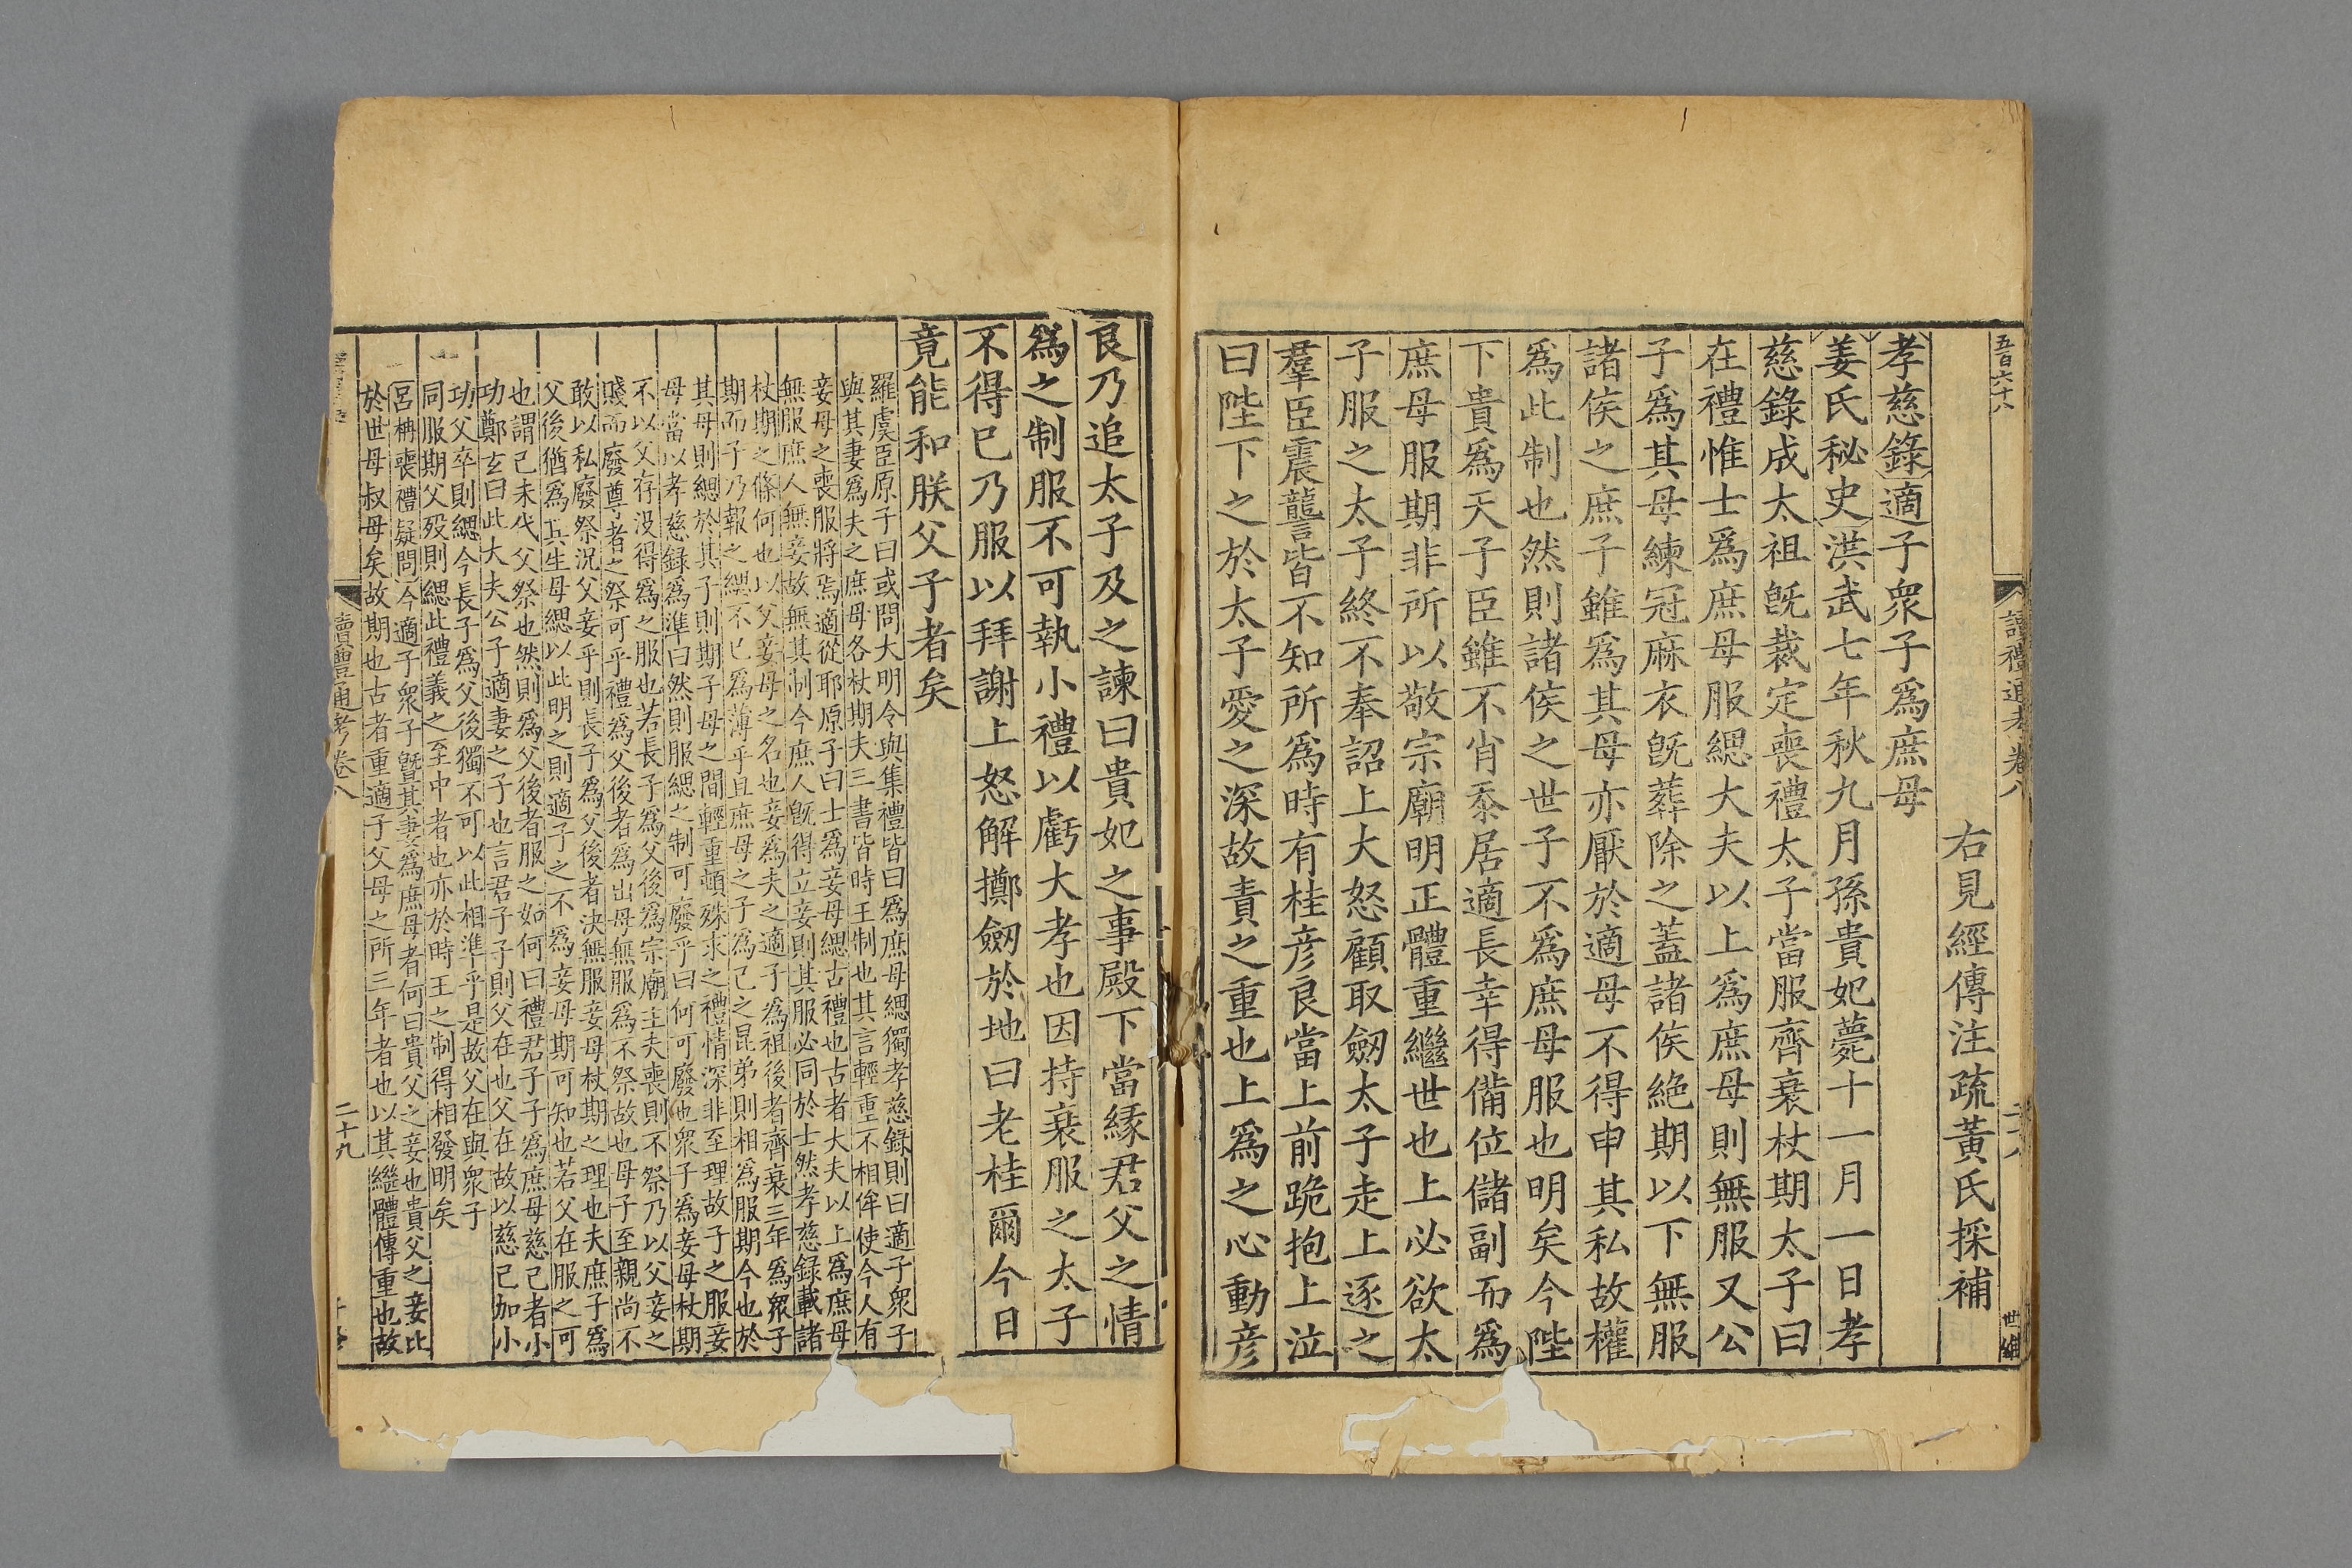 五百六十八
讀禮通考卷八
世維
右見經傳注疏黃氏採補
孝慈錄適子衆子爲庶母
姜氏秘史洪武七年秋九月孫貴妃薨十一月一日孝
慈錄成太祖旣裁定喪禮太子當服齊衰杖期太子曰
在禮惟士爲庶母服緦大夫以上爲庶母則無服又公
子爲其母練冠麻衣旣葬除之蓋諸侯絶期以下無服
諸侯之庶子雖爲其母亦厭於適母不得申其私故權
爲此制也然則諸侯之世子不爲庶母服也明矣今陛
下貴爲天子臣雖不肖忝居適長幸得備位儲副而爲
庶母服期非所以敬宗廟明正體重繼世也上必欲太
子服之太子終不奉詔上大怒顧取劒太子走上逐之
羣臣震讋皆不知所爲時有桂彦良當上前跪抱上泣
曰陛下之於太子愛之深故責之重也上爲之心動彦
良乃追太子及之諫曰貴妃之事殿下當縁君父之情
爲之制服不可執小禮以虧大孝也因持衰服之太子
不得已乃服以拜謝上怒解擲劒於地曰老桂爾今日
竟能和朕父子者矣
羅虞臣原子曰或問大明令與集禮皆曰爲庶母緦獨孝慈錄則曰適子衆子
與其妻爲夫之庶母各杖期夫三書皆時王制也其言輕重不相侔使今人有
妾母之喪服將焉適從耶原子曰士爲妾母緦古禮也古者大夫以上爲庶母
無服庶人無妾故無其制今庶人旣得立妾則其服必同於士然孝慈録載諸
杖期之條何也以父妾母之名也妾爲夫之適子爲祖後者齊衰三年爲衆子
期而子乃報之緦不已爲薄乎且庶母之子爲己之昆弟則相爲服期今也於
其母則緦於其子則期子母之間輕重頓殊求之禮情深非至理故子之服妾
母當以孝慈録爲準曰然則服緦之制可廢乎曰何可廢也衆子爲妾母杖期
不以父存没得爲之服也若長子爲父後爲宗廟主夫喪則不祭乃以父妾之
賤而廢尊者之祭可乎禮爲父後者爲出母無服爲不祭故也母子至親尚不
敢以私廢祭況父妾乎則長子爲父後者決無服妾母杖期之理也夫庶子爲
父後猶爲其生母緦以此明之則適子之不爲妾母期可知也若父在服之可
也謂己未代父祭也然則爲父後者服之如何曰禮君子子爲庶母慈己者小
功鄭玄曰此大夫公子適妻之子也言君子子則父在也父在故以慈己加小
功父卒則緦今長子爲父後獨不可以此相準乎是故父在與衆子
同服期父殁則緦此禮義之至中者也亦於時王之制得相發明矣
呂柟喪禮疑問今適子衆子曁其妻爲庶母者何曰貴父之妾也貴父之妾比
於世母叔母矣故期也古者重適子父母之所三年者也以其繼體傳重也故
讀禮通考卷八
二十九